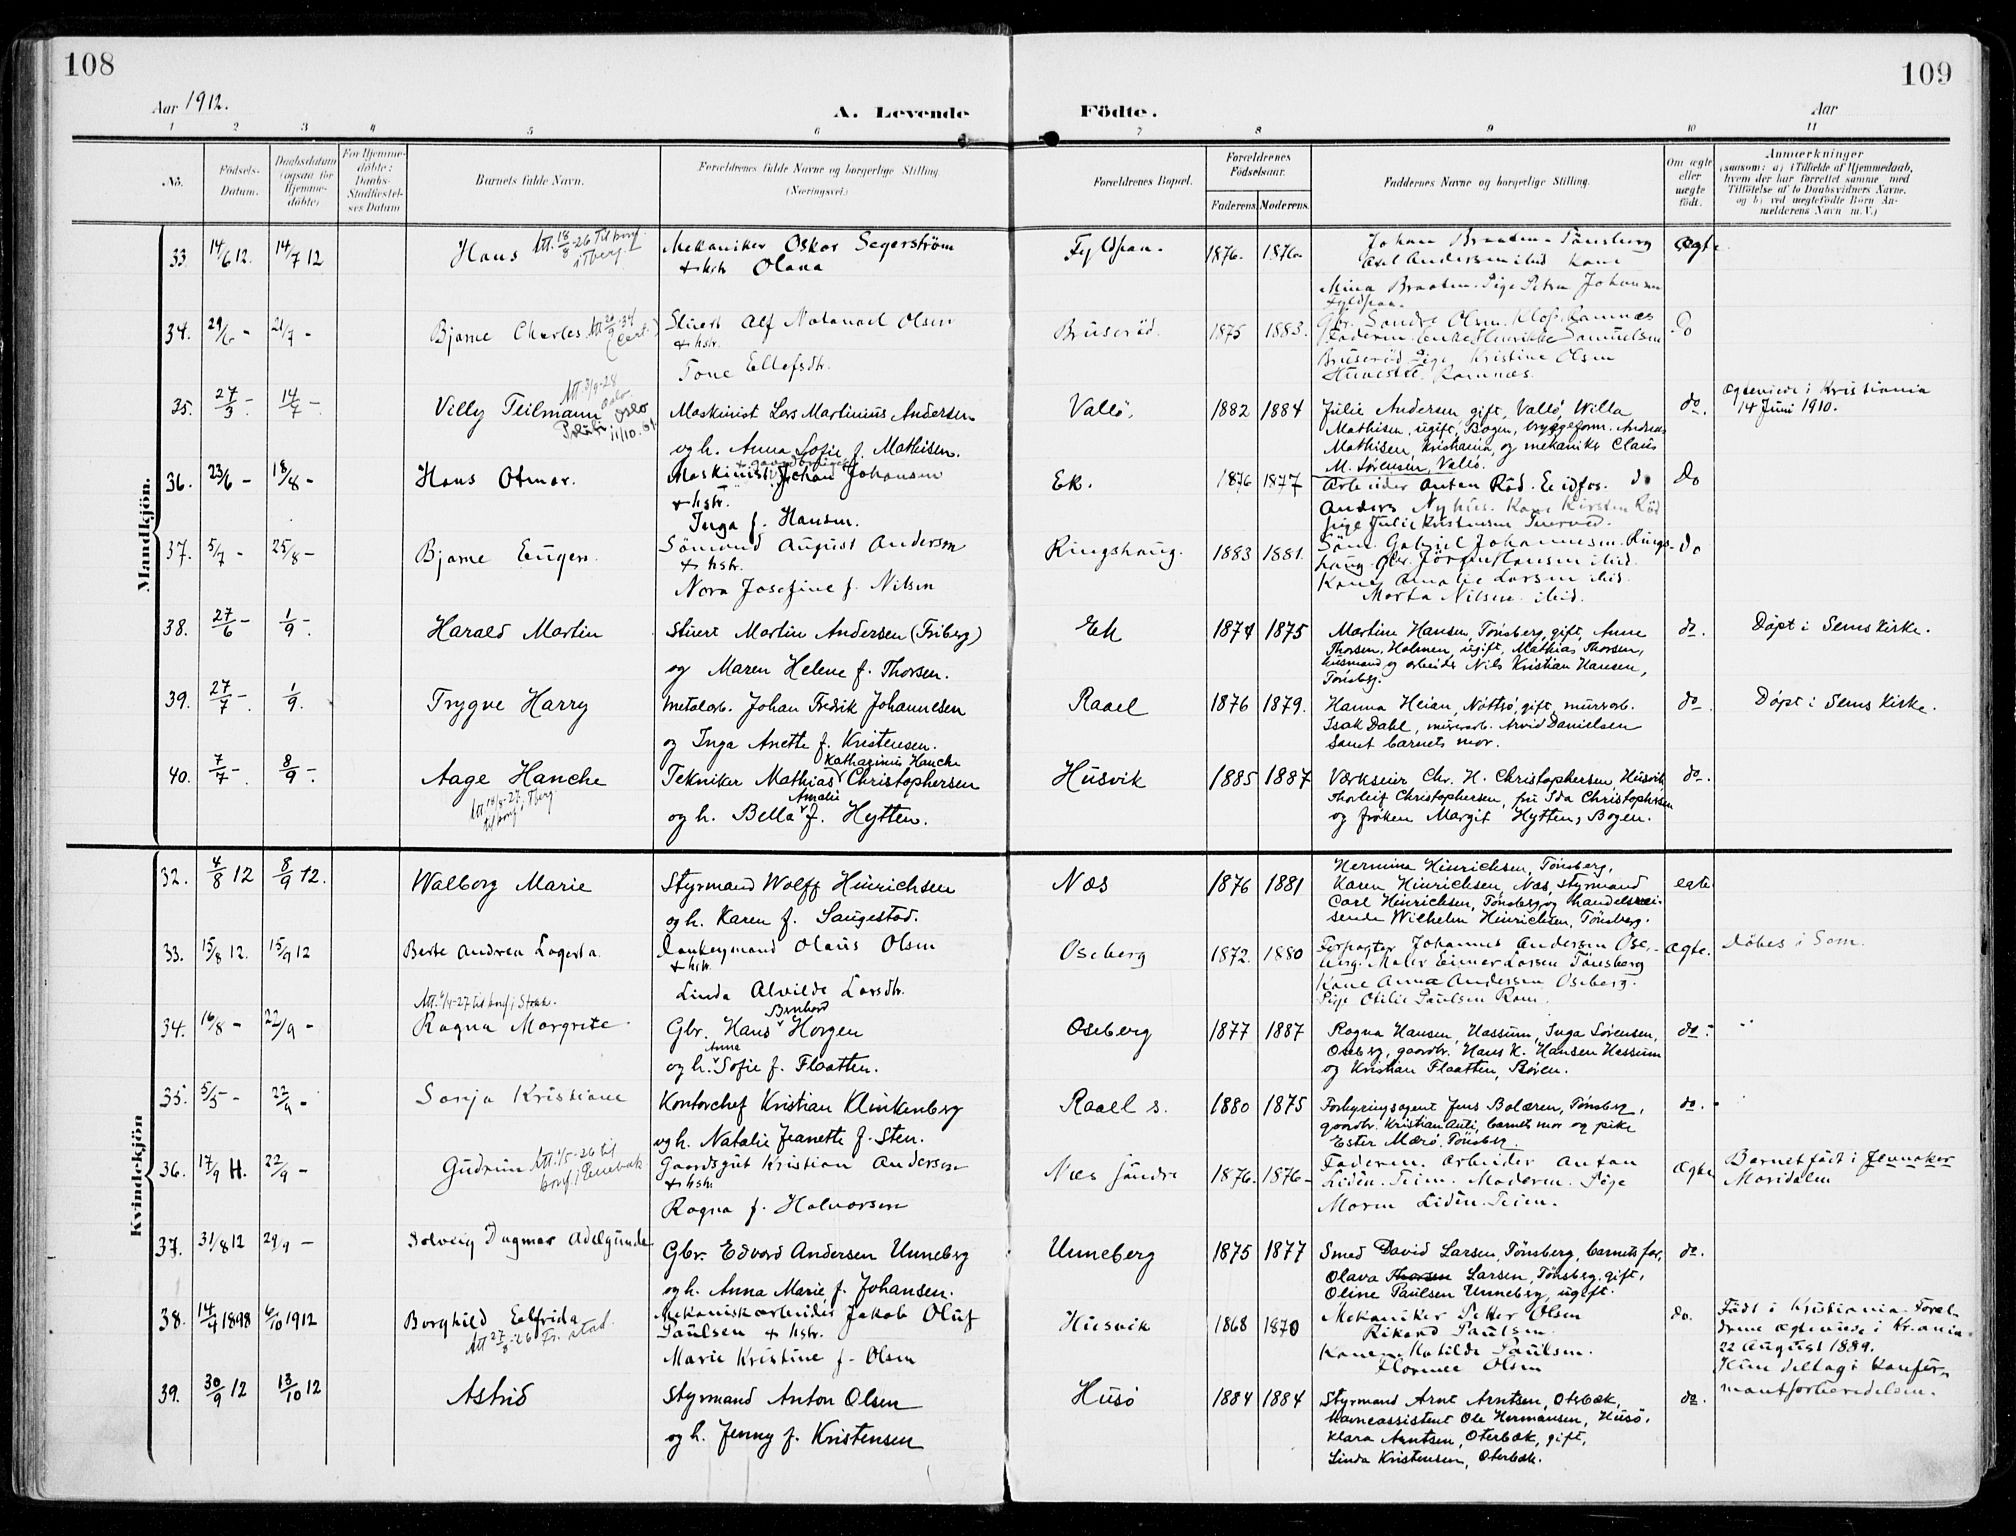 108
109
Aar 1912.
A. Levende Födte.
Aar
1 2 3 4 5 6 7 8 9 10 11
No.
Födsels-Datum.
Daabsdatum (ogsaa for Hjemme-döbte)
For Hjemme-döbte: Daabs-Stadfæstel-ses Datum
Barnets fulde Navn.
Forældrenes fulde Navne og borgerlige Stilling. (Næringsvei.)
Forældrenes Bopæl.
Forældrenes Födselsaar.
Faderens. Moderens.
Faddernes Navne og borgerlige Stilling.
Om ægte eller uægte födt.
Anmærkninger
(saasom: a) i Tilfælde af Hjemmedaab, hvem der har forrettet samme, med Tilföielse af to Daabsvidners Navne, og b) ved uægtefödte Börn Anmelderens Navn m. V.)
Mandkjön.
33. 14/6 12. 14/7 12 Hans Att. 18/8-26 til konf. i Tberg. Mekaniker Oskar Segerström + hstr. Olava Fyldpaa. 1876. 1876. Johan Braaten. Tönsberg Axel Andersen ibid Kone Mina Braaten. Pige Petra Johansen Fyldpaa. ægte
34. 29/6 - 21/7 - Bjarne Charles. Stuert Alf Natanael Olsen + hstr. Tone Ellefsdtr. Bruserød. 1875 1883. Gbr. Sondre Olsen. Klop. Ramnæs Faderen. Enke Henrikke Samuelsen Bruserød Pige Kristine Olsen Ramnæs. Do
35. 27/3 - 14/7 -. Villy Teilmann Att 3/9-28 Oslo Maskinist Lars Martinius Andersen og h. Anna Sofie f. Mathisen. Vallö. 1882 1884 Julie Andersen gift, Vallö, Willa Mathisen, ugift, Bogen, bryggeform. Andreas Mathisen, Kristiania, og mekaniker Claus M. Sørensen, Vallö. do. Ægteviede i Kristiania 14 Juni 1910.
36. 23/6 - 18/8 - Hans Otmar. Maskinist Johan Johansen + hstr. Inga f. Hansen. Ek. 1876 1877 Arbeider Anton Röd. Eidfos. do Anders Nyhus. Kone Kirsten Röd Pige Julie Kristensen Do
37. 5/7 - 25/8 - Bjarne Eugen. Sömand August Andersen + hstr. Nora Josefine f. Nilsen Ringshaug. 1883 1881. Söm. Gabriel Johannesen. Ringshaug. Gbr. Jörgen Hansen ibid. Kone Amalie Larsen ibid. Marta Nilsen. ibid. do
38. 27/6 -. 1/9 -. Harald Martin Stuert Martin Andersen (Friberg) og Maren Helene f. Thorsen. Ek 1874 1875 Martine Hansen, Tønsberg, gift, Anne Thorsen, Holmen, ugift, Mathias Thorsen, husmand, og arbeider Nils Kristian Hansen, Tønsberg. do. Døpt i Sems Kirke.
39. 27/7 -. 1/9. Trygve Harry metalarb. Johan Fredrik Johannesen og Inga Anette f. Kristensen. Raael 1876 1879. Hanna Heian, Nøttrø, gift, murarb. Isak Dahl, murerarb. Arvid Danielsen samt barnets mor. do. Døpt i Sems Kirke.
40. 7/7 -. 8/9 -. Aage Hanche Att. 14/8-27, Tberg til konf. Tekniker Mathias Katharinus Hanche Christophersen og h. Bella Amalie f. Hytten. Husvik 1885 1887 Værkseier Chr. H. Christophersen Husvik, Thorleif Christophersen, fru Ida Christophersen og frøken Margit Hytten, Bogen. do.
Kvindekjön
32. 4/8 12 8/9 12. Walborg Marie Styrmand Wolff Hinrichsen og h. Karen f. Saugestad. Næs 1876 1881 Hermine Hinrichsen, Tønsberg, Karen Hinrichsen, Næs, styrmand Carl Hinrichsen, Tønsberg og handelsreisende Wilhelm Hinrichsen, Tønsberg. egte
33. 15/8 12. 15/9 12 Berte Andrea Lagerta. Dankeymand Olaus Olsen + hstr. Linda Alvilde Larsdtr. Oseberg 1872. 1880 Forpagter Johannes Andersen Oseberg. Maler Einar Larsen Tönsberg Kone Anna Andersen Oseberg. Pige Otilie Paulsen Ram. ægte. Döbes i Sem.
34. 16/8 - 22/9 - Att. 4/4-27 til konf. i Stokke. Ragna Margrete. Gbr. Hans Bernhard Horgen og h. Anna Sofie f. Flaatten. Oseberg 1877 1887 Ragna Hansen, Hassum, Inga Sørensen, Oseberg, gaardbr. Hans K. Hansen Hassum og Kristian Flaatten, Bøien. do.
35. 5/5 - 22/9 - Sonja Kristiane Kontorchef Kristian Klinkenberg og h. Natalie Jeanette f. Sten. Raael s. 1880 1875 Forsyringsagent Jens Bolæren, Tønsberg, gaardbr. Kristian Anti, barnets mor og pike Ester Mærø, Tønsberg. do.
36. 17/9 H. 22/9 - Gudrun Att. 1/5-26 til konf. i Gaardsgut Kristian Andersen + hstr. Ragna f. Halvorsen Næs söndre 1876. 1876 - Faderen. Arbeider Anton Lidén. Teien. Moderen. Pige Maren Lidén. Teien. Ægte Barnet födt i Maridalen
37. 31/8 12 29/9 - Solveig Dagmar Adelgunde Gbr. Edvard Andersen Unneberg og h. Anna Marie f. Johansen. Unneberg 1875 1877 Smed David Larsen, Tønsberg, barnets far, Olava Thorsen Larsen, Tønsberg, gift, Oline Paulsen Unneberg, ugift. do.
38. 14/4 1898 6/10 1912 Borghild Elfrida Att 27/8-26 Fr. stad. Mekanisk arbeider Jakob Oluf Paulsen + hstr. Marie Kristine f. Olsen Husvik 1868 1870 Mekaniker Petter Olsen Rikard Paulsen. Konen Matilde Paulsen. Florence Olsen do. Födt i Kristiania. Forældrene ægteviede i Kr.ania 22 August 1889. Hun deltagi konfirmantforberedelsen.
39. 30/9 12 13/10 12 Astrid Styrmand Anton Olsen og h. Jenny f. Kristensen Husö 1884 1884 Styrmand Arnt Arntsen, Oterbæk, Havneassistent Ole Hermansen, Husö, Klara Arntsen, Oterbæk, gift, Linda Kristensen, Oterbæk. do.